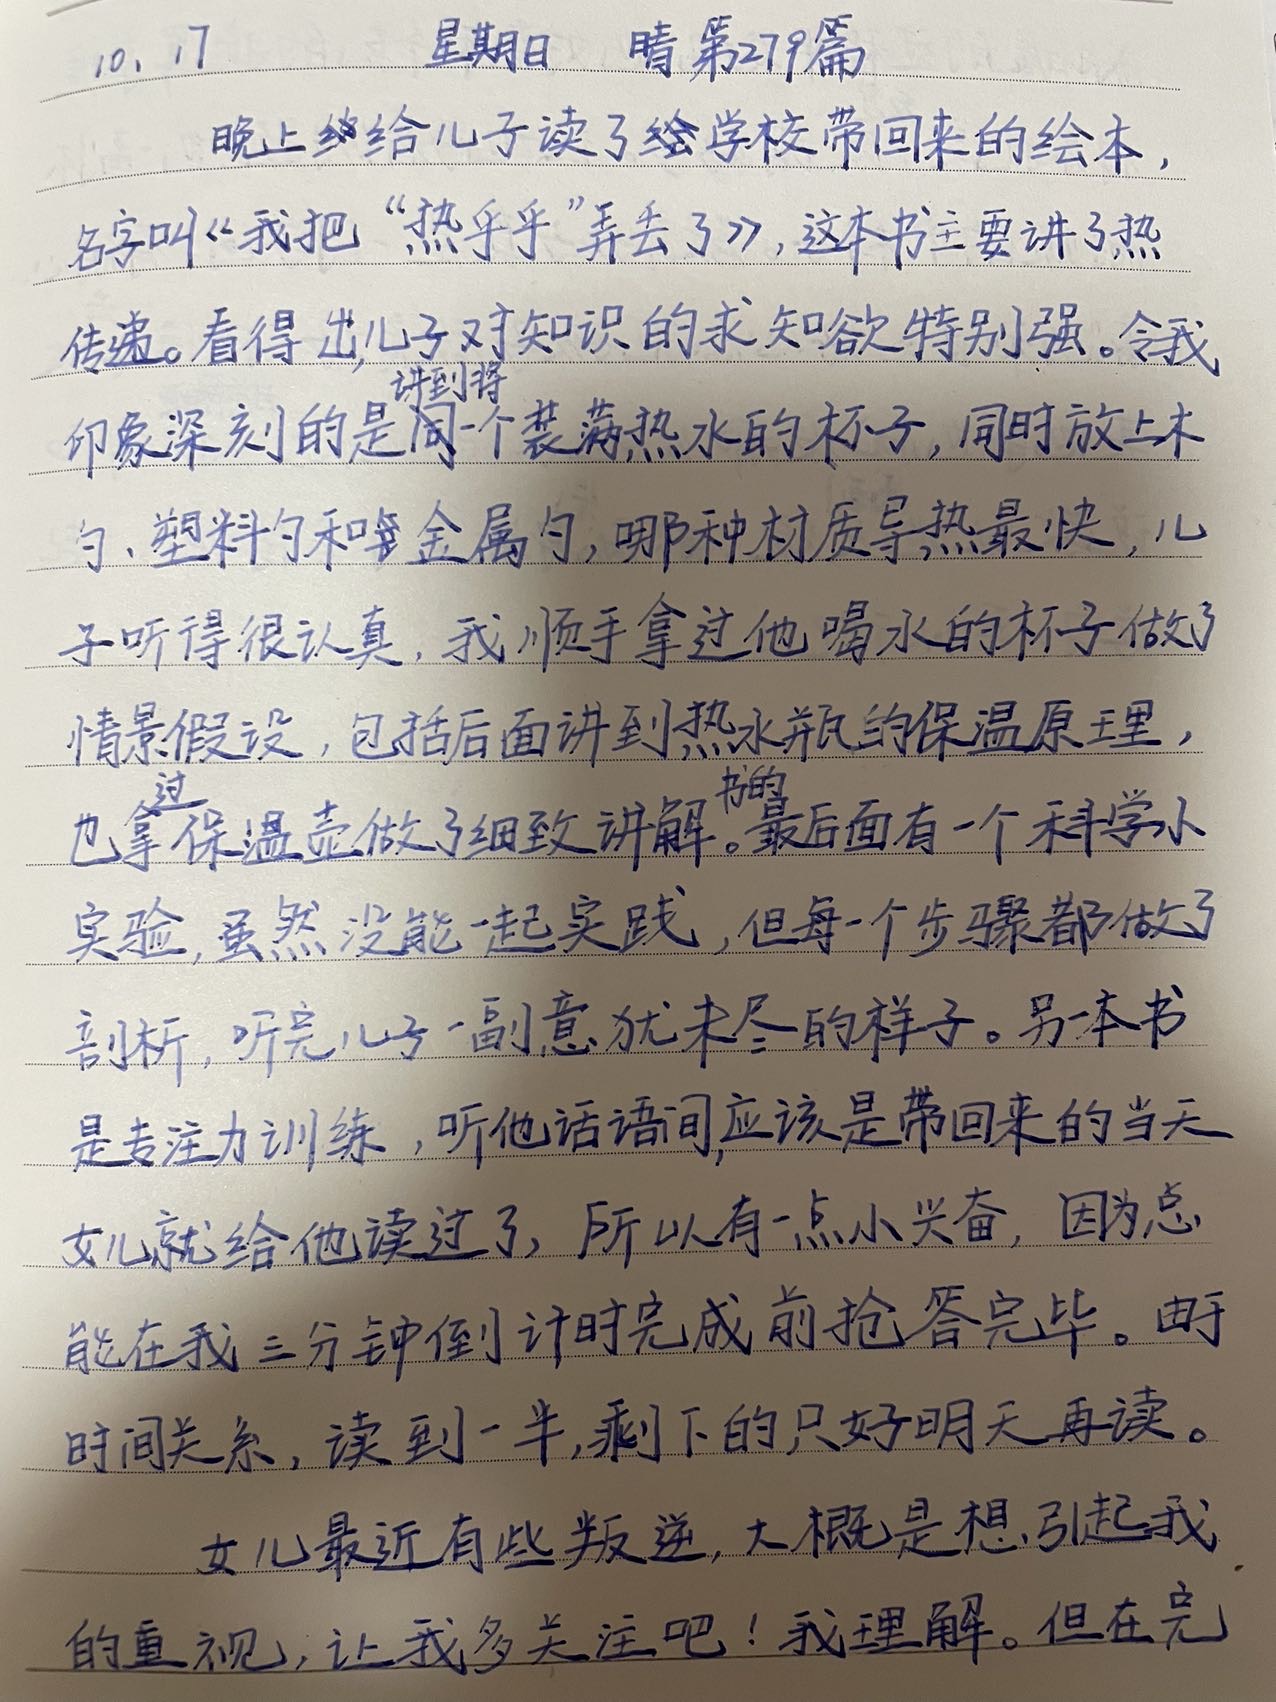 10.17 星期日 晴 第279篇
晚上给儿子读了学校带回来的绘本，
名字叫《我把“热乎乎”弄丢了》，这本书主要讲了热
传递。看得出儿子对知识的求知欲特别强。令我
讲到将
印象深刻的是同一个装满热水的杯子，同时放上木
勺、塑料勺和金属勺，哪种材质导热最快，儿
子听得很认真，我顺手拿过他喝水的杯子做了
情景假设，包括后面讲到热水瓶的保温原理，
过 书的
也拿保温壶做了细致讲解。最后面有一个科学小
实验，虽然没能一起实践，但每一个步骤都做了
剖析，听完儿子一副意犹未尽的样子。另一本书
是专注力训练，听他话语间，应该是带回来的当天
女儿就给他读过了，所以有一点小兴奋，因为总
能在我三分钟倒计时完成前抢答完毕。由于
时间关系，读到一半，剩下的只好明天再读。
女儿最近有些叛逆，大概是想引起我
的重视，让我多关注吧！我理解。但在完